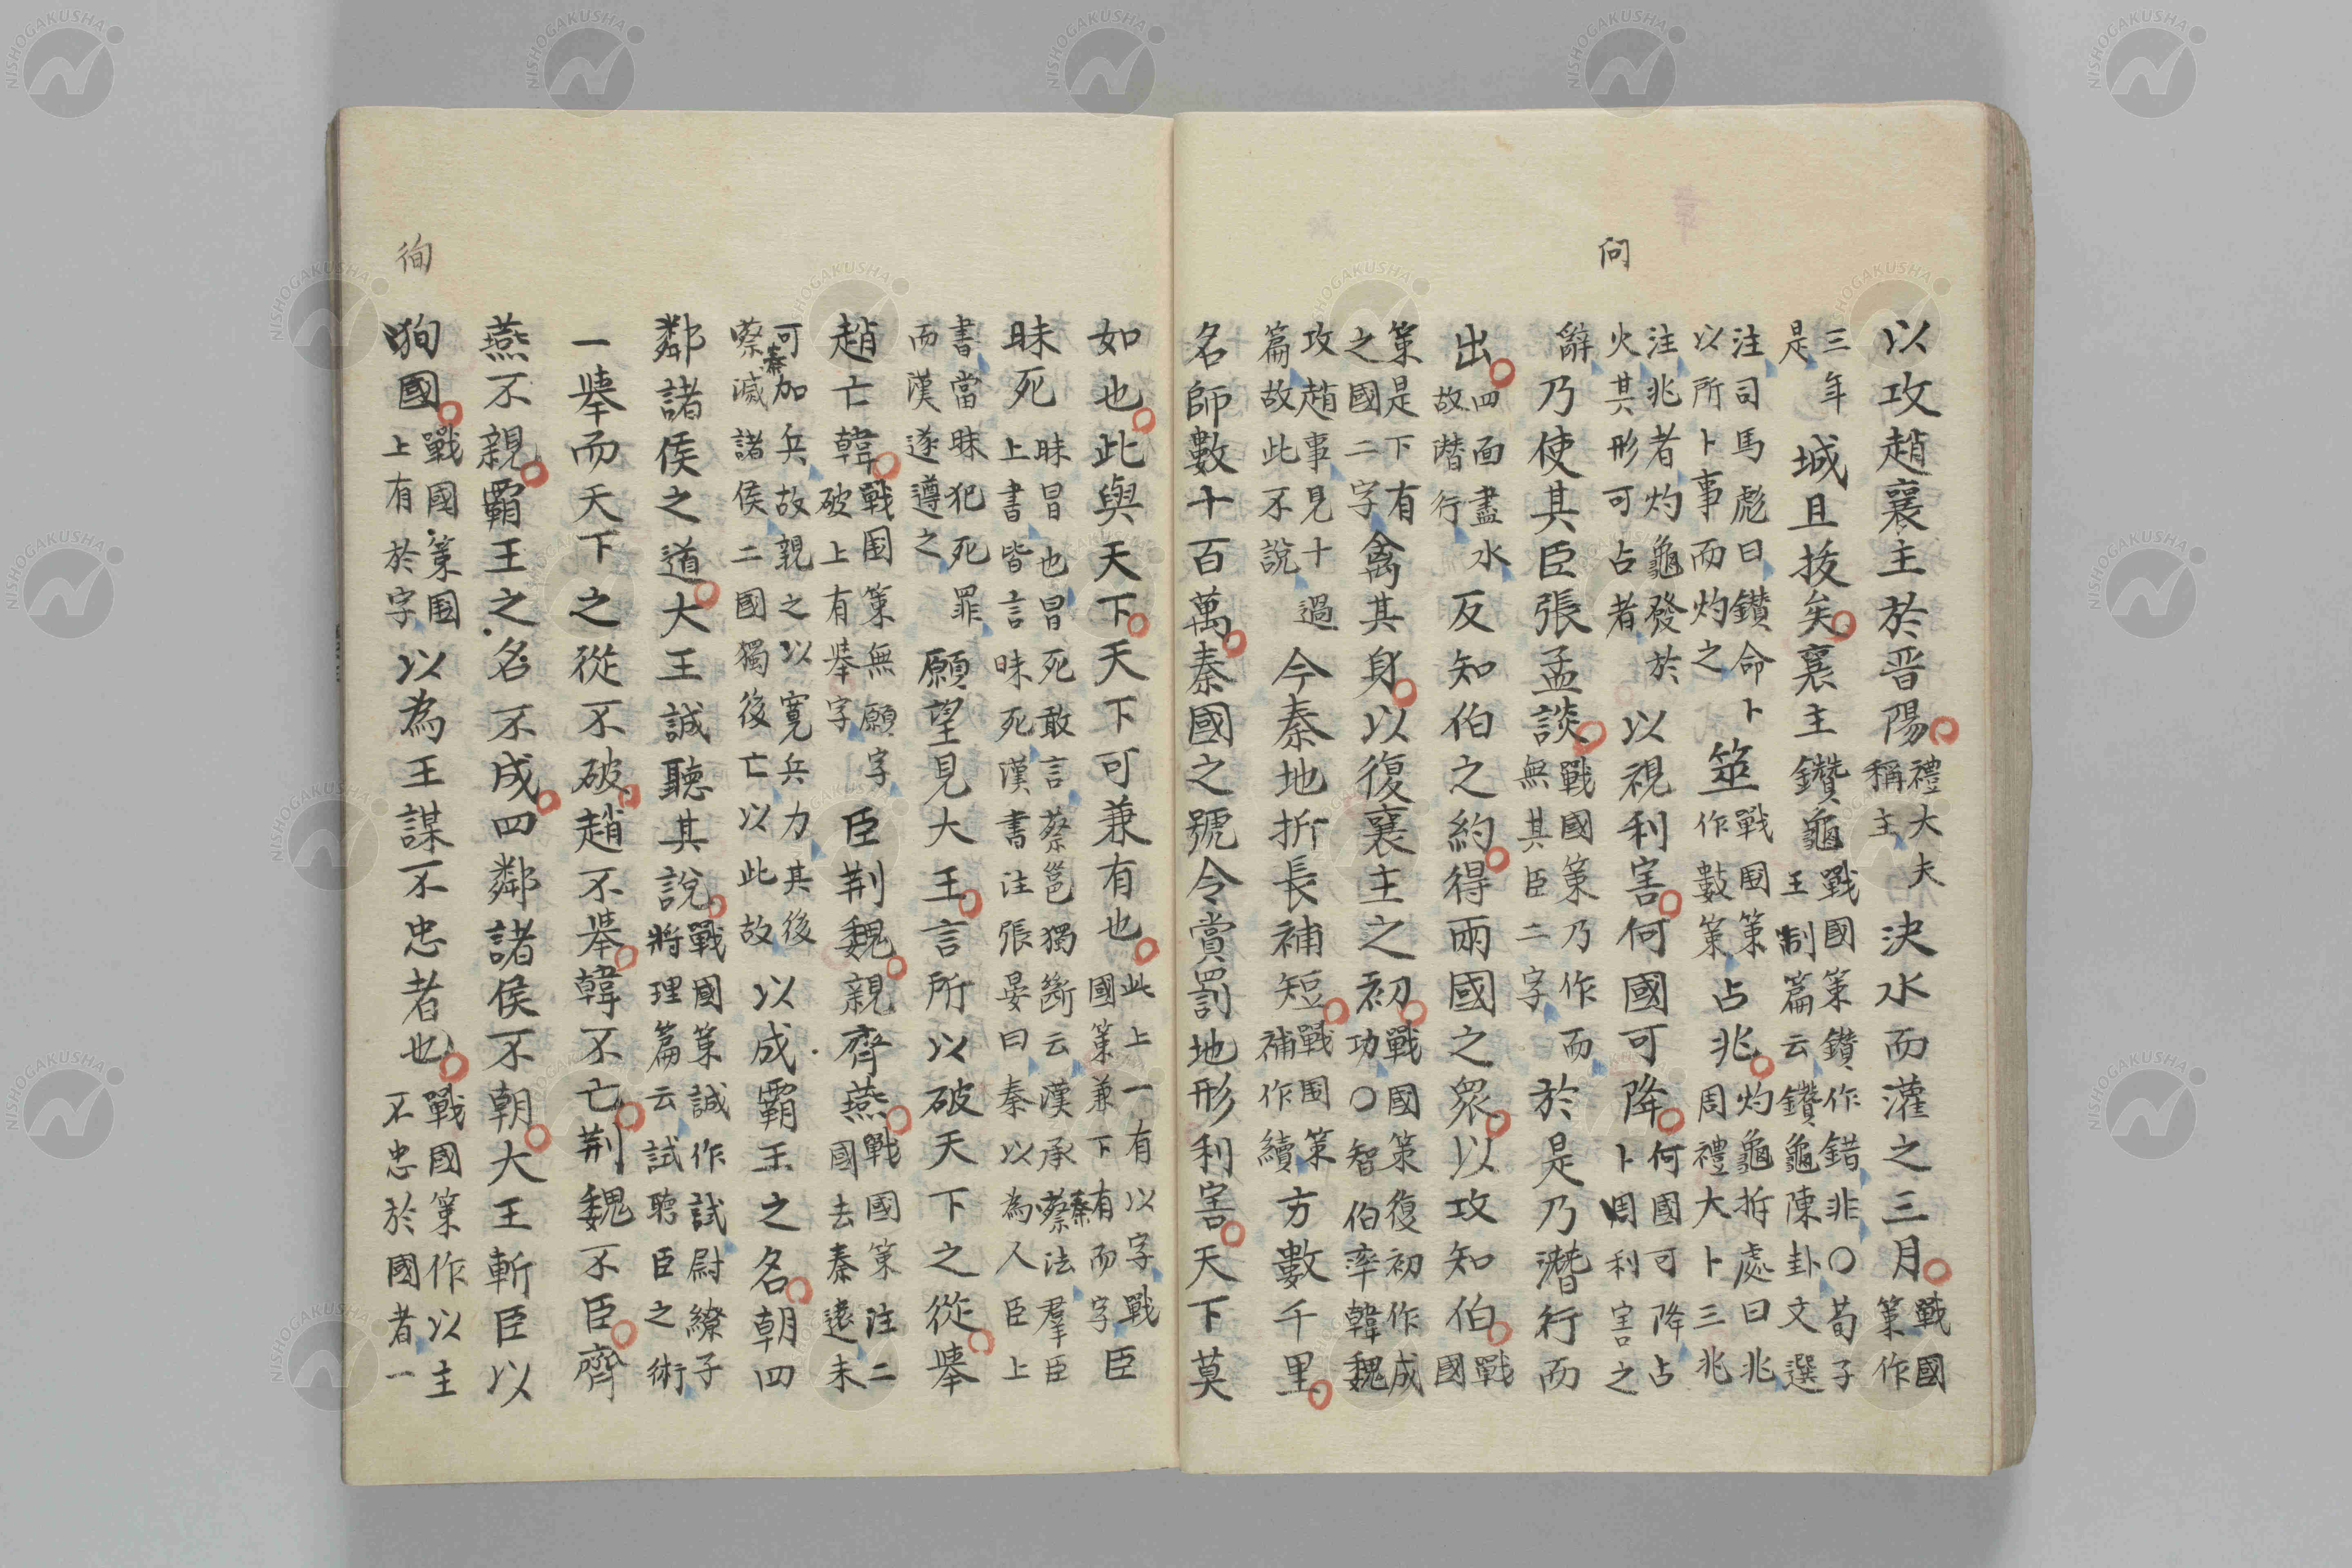 问
以攻趙襄主於晋陽禮大夫稱主決水而灌之三月戰國策作
三年是城且抜矣襄主鑽龜戰國策鑽作錯非〇荀子王制篇云鑽龜陳卦文選
注司馬彪曰鑽命卜以所卜事而灼之筮戰国策作數策占兆灼龜拆處曰兆周禮大卜三兆
注兆者灼龜發於火其形可占者以視利害何國可降何國可降占卜周利害之
辭乃使其臣張孟談戰國策乃作而無其臣二字於是乃潛行而
出四面盡水故潜行反知伯之約得兩國之眾以攻知伯戰國
策是下有之國二字禽其身以復襄主之初戰國策復初作成功〇智伯率韓魏
攻趙事見十過篇故此不說今秦地折長補短戰国策補作續方數千里
名師數十百萬秦國之號令賞罰地形利害天下莫
徇
如也此與天下天下可兼有也此上一有以字戰國策兼下有而字臣
昧死昧冒也冒死敢言蔡邕獨斷云漢承秦法羣臣上書皆言昧死漢書注張晏曰秦以為人臣上
書當昧犯死罪而漢遂遵之願望見大王言所以破天下之從舉
趙亡韓戰国策無願字破上有舉字臣荆魏親齊燕戰國策注二國去秦遠未
可加兵故親之以寬兵力其後秦滅諸侯二國獨後亡以此故以成霸王之名朝四
鄰諸侯之道大王誠聽其說戰國策誠作試尉繚子將理篇云試聴臣之術
一舉而天下之從不破趙不舉韓不亡荆魏不臣齊
燕不親霸王之名不成四鄰諸侯不朝大王斬臣以
狥國戰國策国上有於字以為王謀不忠者也戰國策作以主不忠於國者一